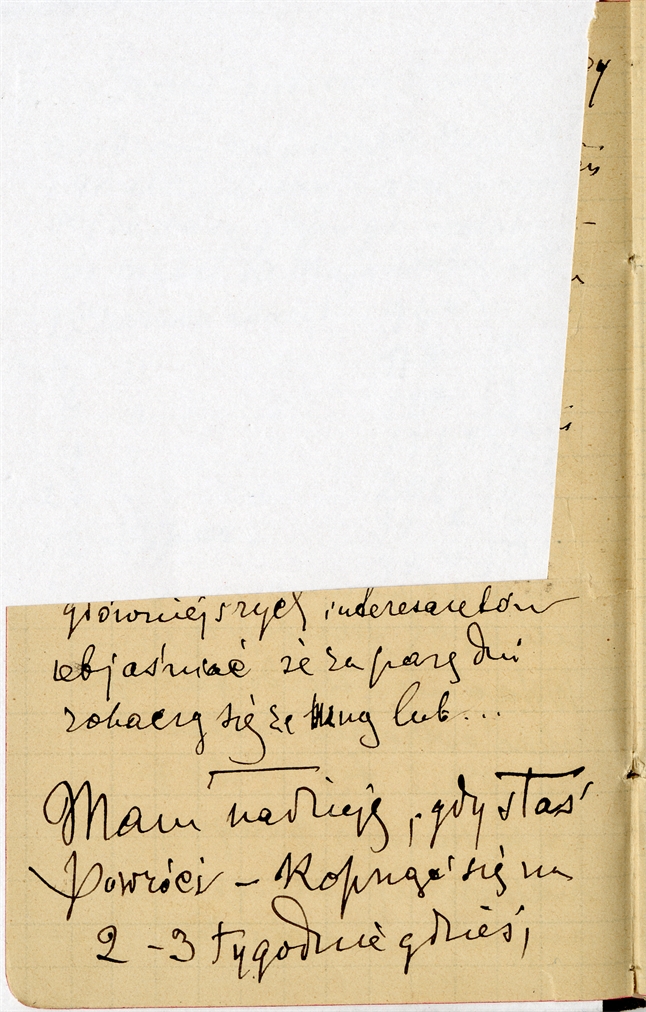 główniejszych interesantów
objaśniać że za parę dni
zobaczą się ze mną lub...
Mam nadzieję, gdy Staś
powróci – kopnąć się na
2 – 3 tygodnie gdzieś,